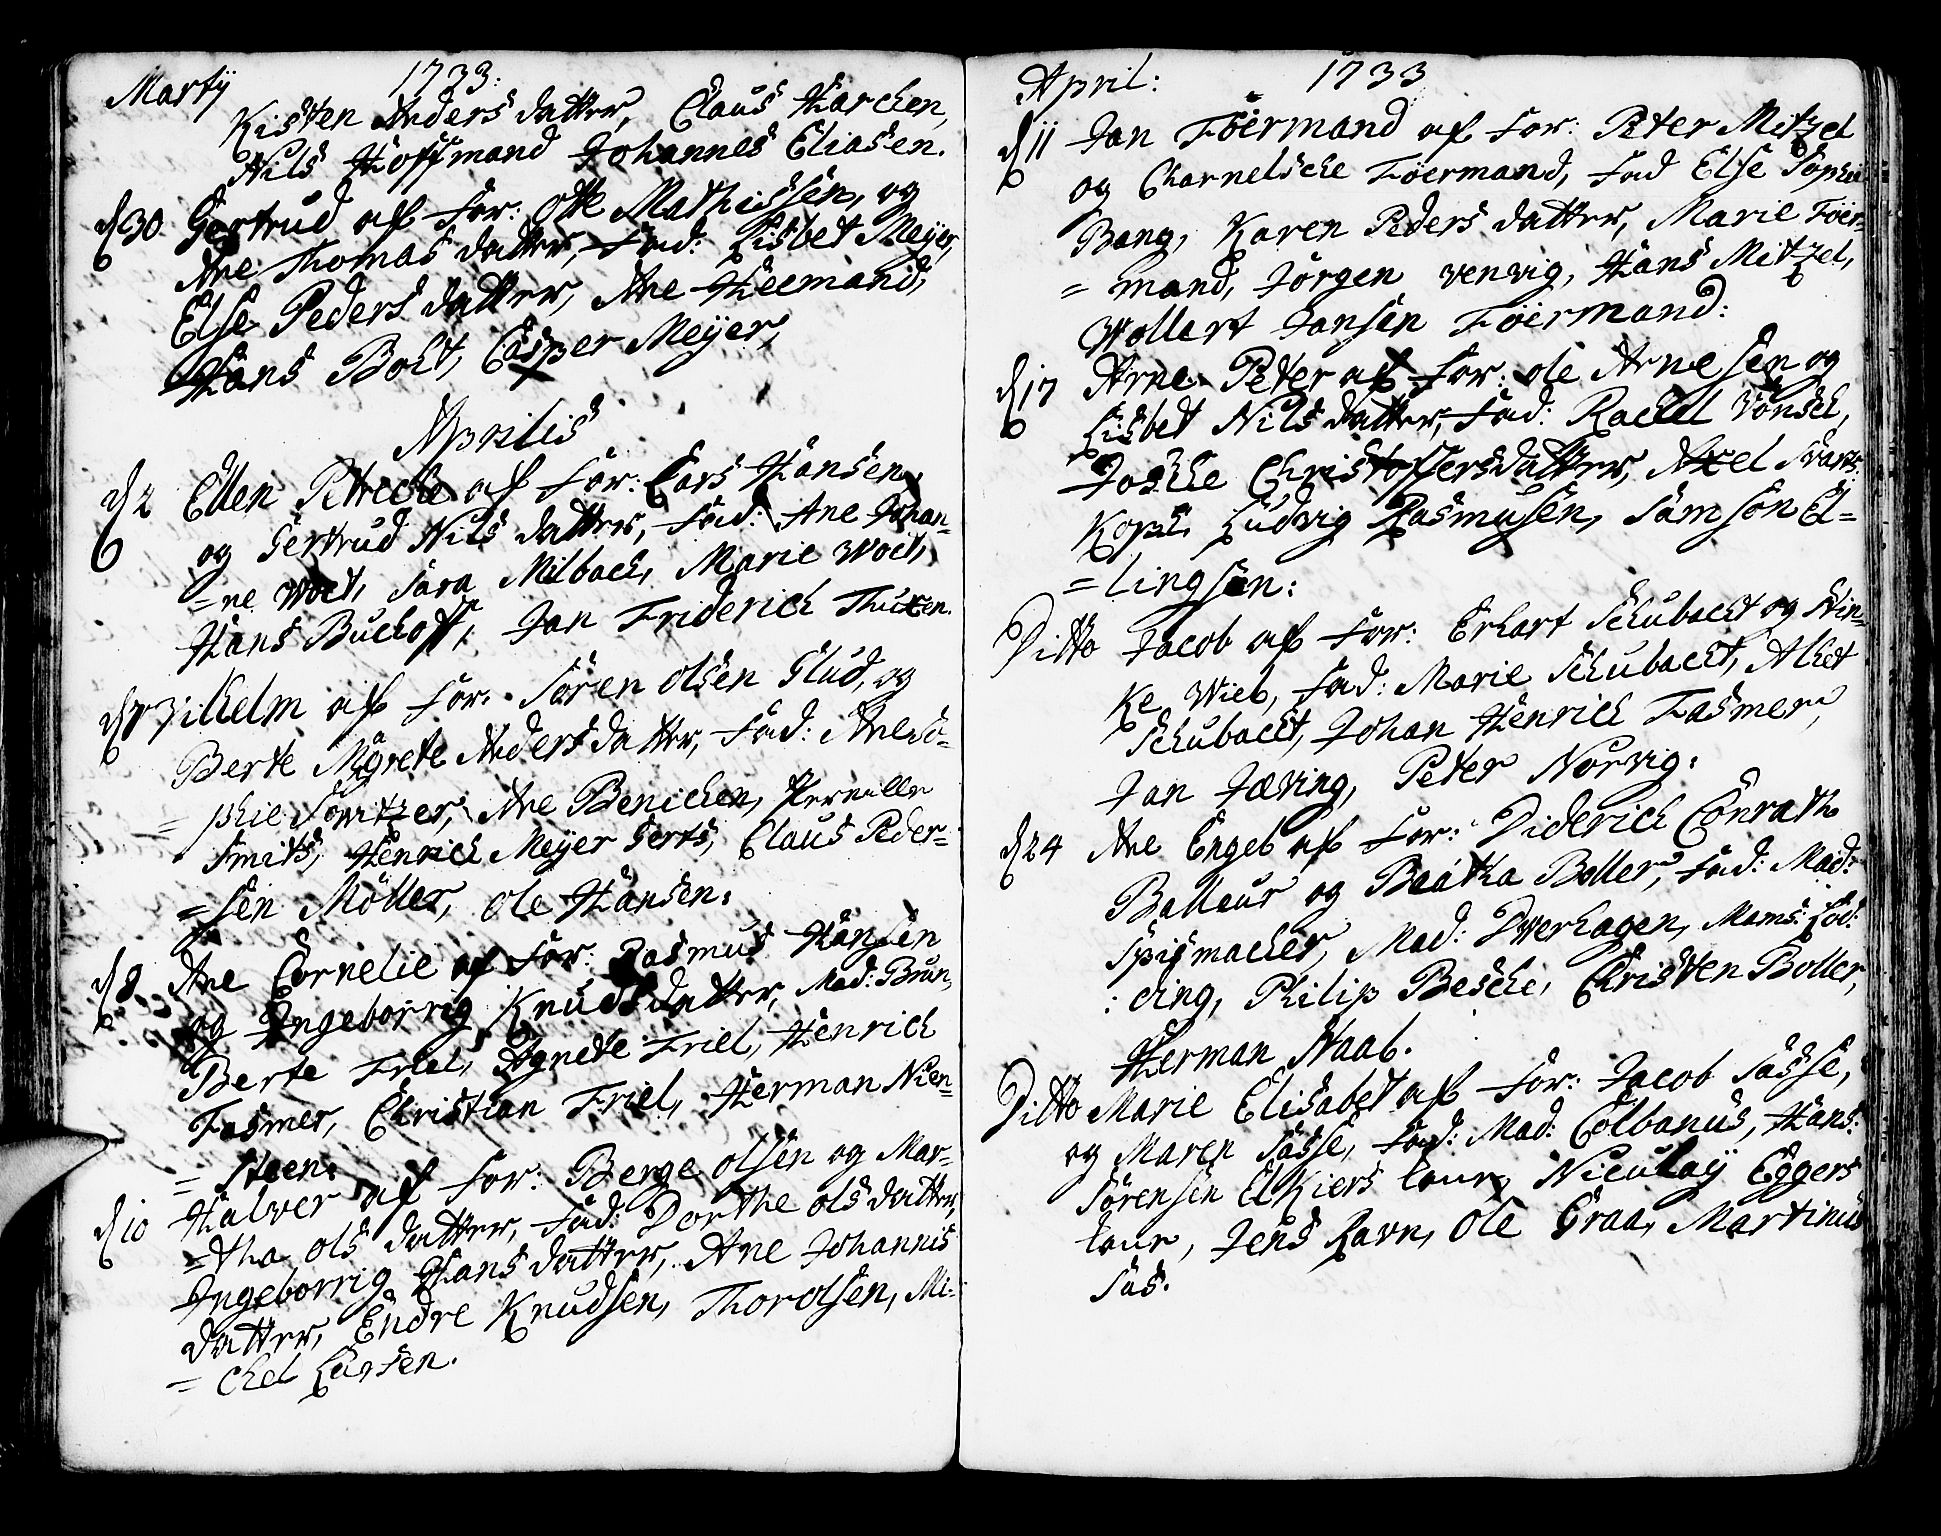 Martij 1733:
Kisten Anders datter, Claus Harchen,
Nils Hoffmand Johannes Eliasen.
d 30 Gertrud af For: Otte Mathissen, og
Ane Thomas datter, Fad: Lisbet Meyer,
Else Peders datter, Ane Heemand,
Hans Bolt, Casper Meyer,
Aprilis
d 2 Ellen Petreche af For: Lars Hansen,
og Gertrud Nils datter, Fad: Ane Johan-
=ne Woet, Sara Milbach, Marie Woet,
Hans Buchoff, Jan Friderich Thuxen.
d 7 Vilhelm af For: Søren Olsen Glud, og
Berte Mgrete Anders datter, Fad: Ane So-
=phie Sowitzer, Ane Benichen, Pernille
Smits, Henrich Meyer Gerts, Claus Peder-
=sen Møller, Ole Hansen:
d 8 Ane Cornelie af For: Rasmus Hansen
og Ingeborrig Knuds datter, Mad: Brun,
Berte Friel, Agnete Friel, Henrich
Fasmer, Christian Friel, Herman Nien-
=steen:
d 10 Halver af For: Berge Olsen og Mar-
=tha Ols datter, Fad: Dorthe Ols datter,
Ingeborrig Hans datter, Ane Johannis
datter, Endre Knudsen, Thor Olsen, Mi-
=chel Larsen.
April: 1733
d 11 Jan Föermand af For: Peter Mitzel
og Charnelsche Föermand, Fad Else Sophie
Bang, Karen Peders datter, Marie Föer-
=mand, Jörgen venvig, Hans Mitzel,
Wollert Jansen Föermand:
d 17 Arne Peter af For: Ole Arnesen og
Lisbet Nils datter, Fad: Rachel Vönsch,
Joshe Christoffersdatter, Axel Svarts
Kopf, Ludvig Rasmusen, Samson El=
=lingsen:
Ditto Jacob af For: Erhart Schubacht og Hin-
ke Wieb, Fad: Marie Schubacht, Alhet
Schubacht, Johan Henrich Fasmer,
Jan Jæving, Peter Norvig:
d 24 Ane Engel af For: Diderich Conrath
Balleur og Beatha Boller, Fad: Mad:
Spismacher, Mad: Dverhagen, Mams: Löd:
:ding, Philip Besche, Christen Boller,
Herman Naab.
Ditto Marie Elisabet af For: Jacob Sasse,
og Maren Sasse, Fad: Mad: Colbanus, Hans:
Sörensen ElKiers Cour, Niculaij Eggers
Cour, Jens Ravn, Ole Graa, Martinus
Sas.